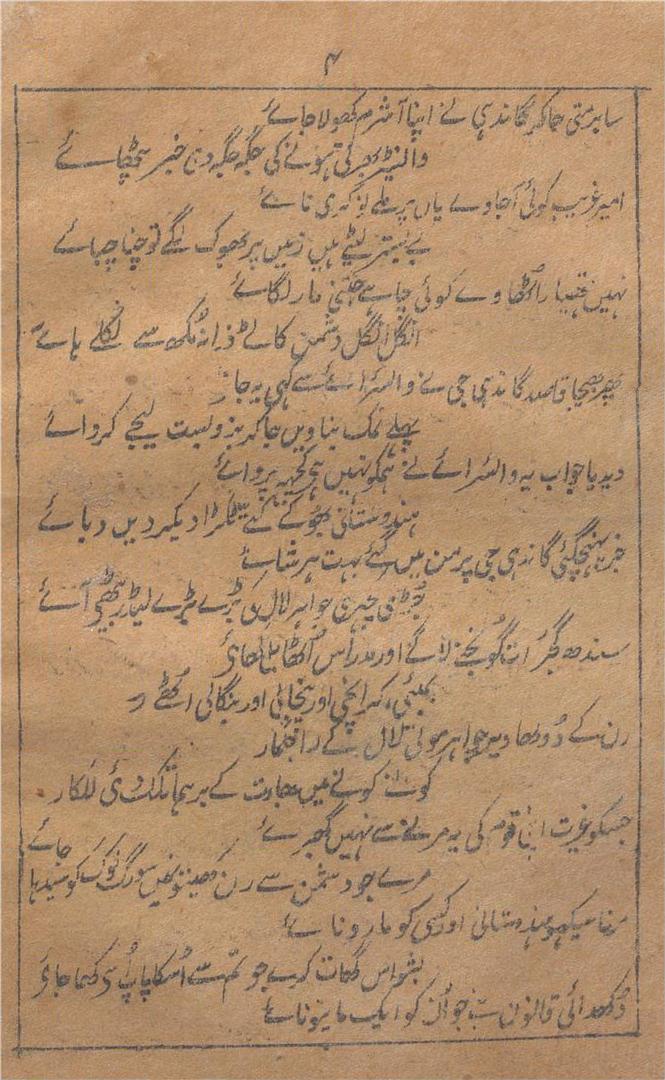 ۴
سابرمتی جاکر گاندہی نے اپنا آشرم کھولا جائے
والنیٹر بھرتی ہونے کی جگہ جگہ دی خبر بچھائے
امیر غریب کوئی آجاوے یاں پر ملے نوکری نائے
بے بستر لیٹے ہیں زمیں پر بھوک لگے تو چنا چبائے
نہیں ہتھیار اٹھاوے کوئی چاہے کتنی مار لگائے
انگل انگل دشمن کاٹے ذرا نہ مکھ سے نکلے ہائے
پھر بھیجا قاصد گاندہی جی نے والسرائے سے کہی یہ جائے
پہلے نمک بناویں جاکر بندوبست لیجے کروائے
دیدیا جواب یہ والسرائے نے ہمکو نہیں ہی کچہہ پروائے
ہندوستانی بھوکے ننگے ٹکڑا دیکر دیں دبائے
خبر پہنچ گئی گاندہی جی پر من میں گئے بہت ہرشائے
جواہر لال کی بڑے بڑے لیڈر بیٹھے آئے
سندھ گجرات گونجنے لاگے اور مدراس اٹھا
بمبئی، کراچی اور پنجابی اور بنگالی اٹھے
رن کے دولھا ویر جواہر موتی لال کے راجکمار
کونے کونے میں بھارت کے للکار
جسکو غیرت اپنی قوم کی یہ مرنے سے نہیں گھبرائے
مرے جو دشمن سے رن سورگ لوک کو سیدہا جائے
مرنا سیکھو ہندوستانی اور کسی کو مارو نائے
بشواس گھات کرے جو تم سے اسکا پاپ اسی کھا جائی
دکھدائی قانون جو ان کو ایک مانیو نائے